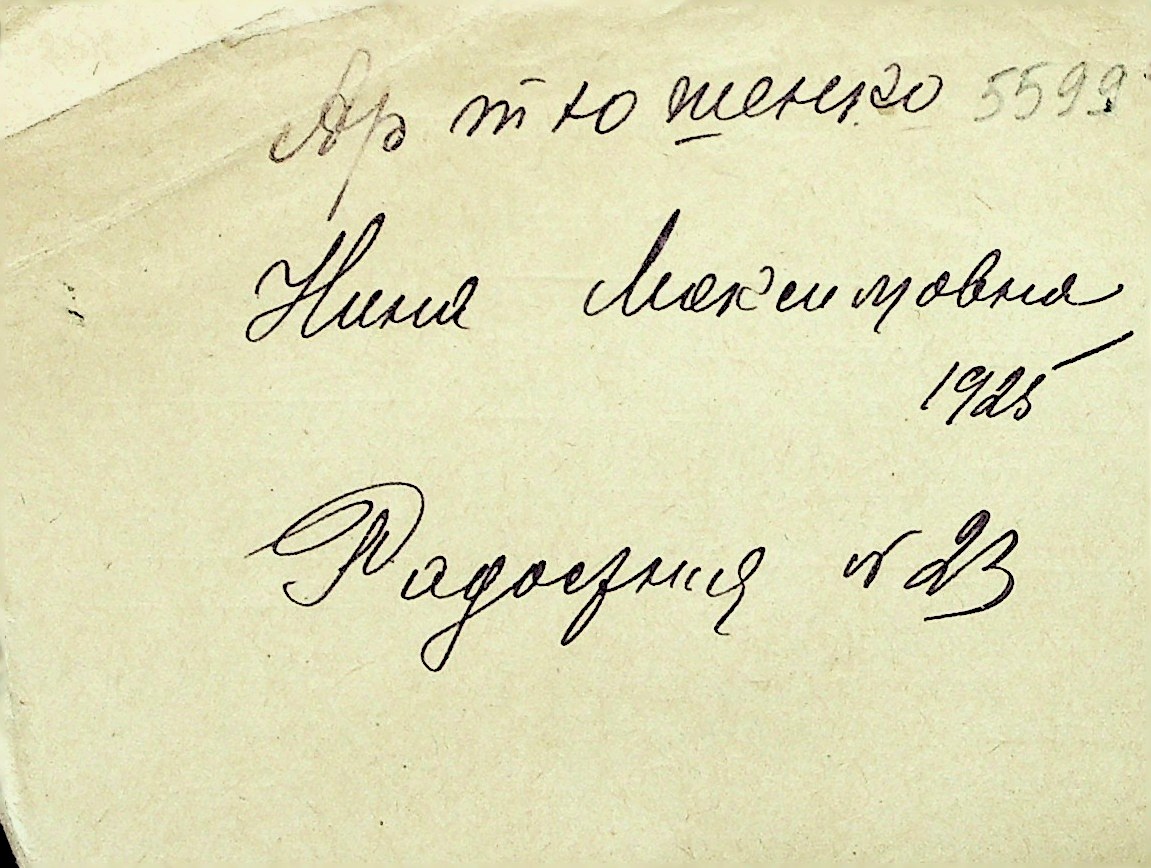 Артюшенко 5599
Нина Максимовна
1925
Радостная № 23